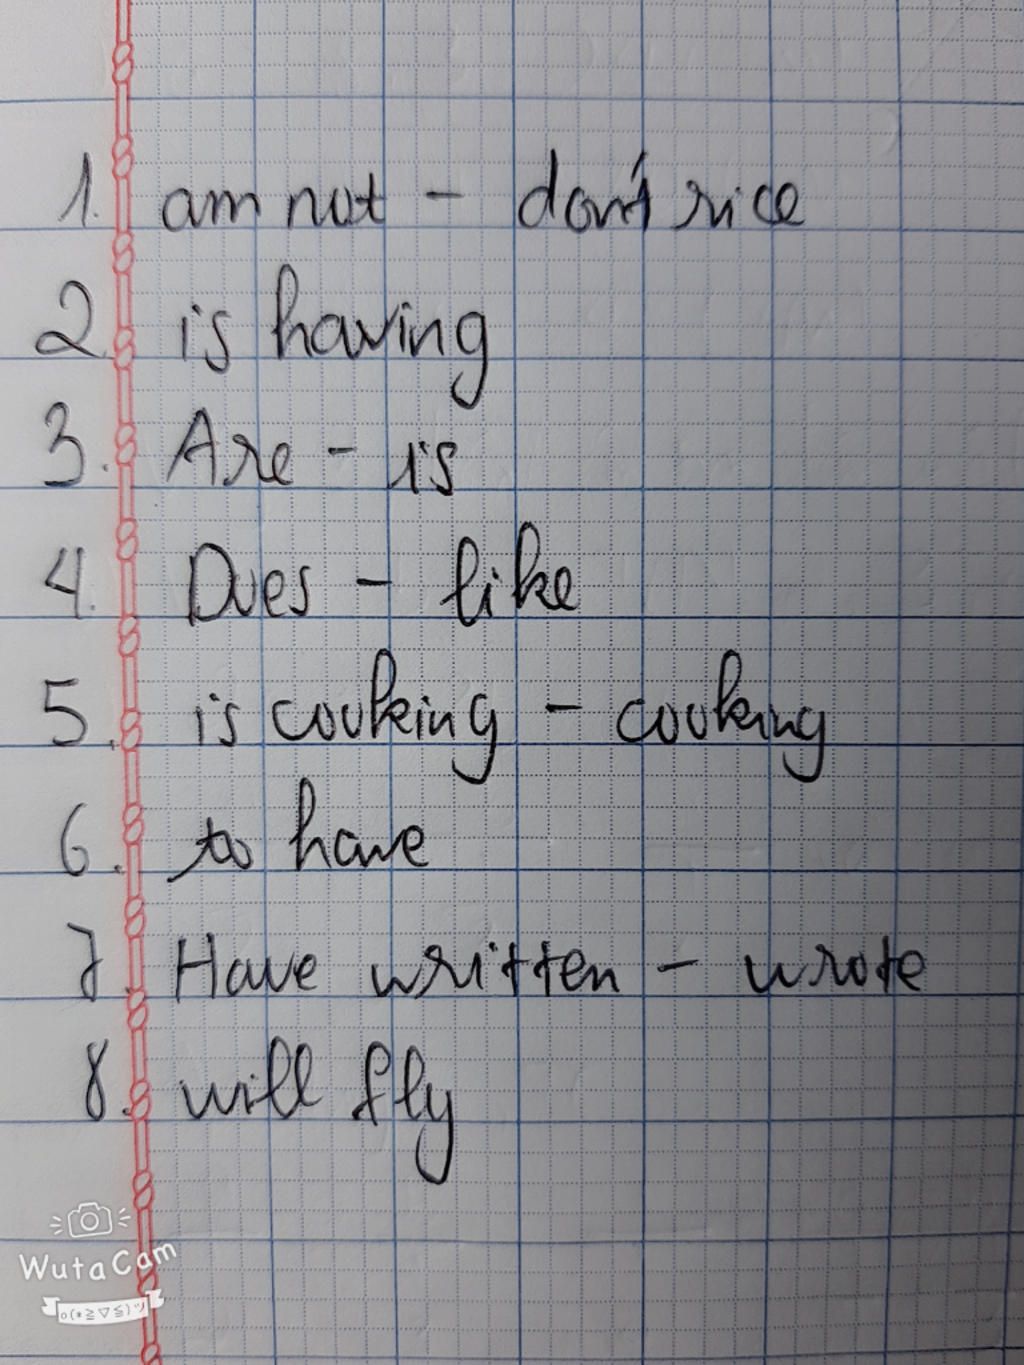 1. am not - don't rice
2. is having
3. Are - is
4. Does - like
5. is cooking - cooking
6. to have
7. Have written - wrote
8. will fly
WutaCam
o(*≧▽≦)ツ